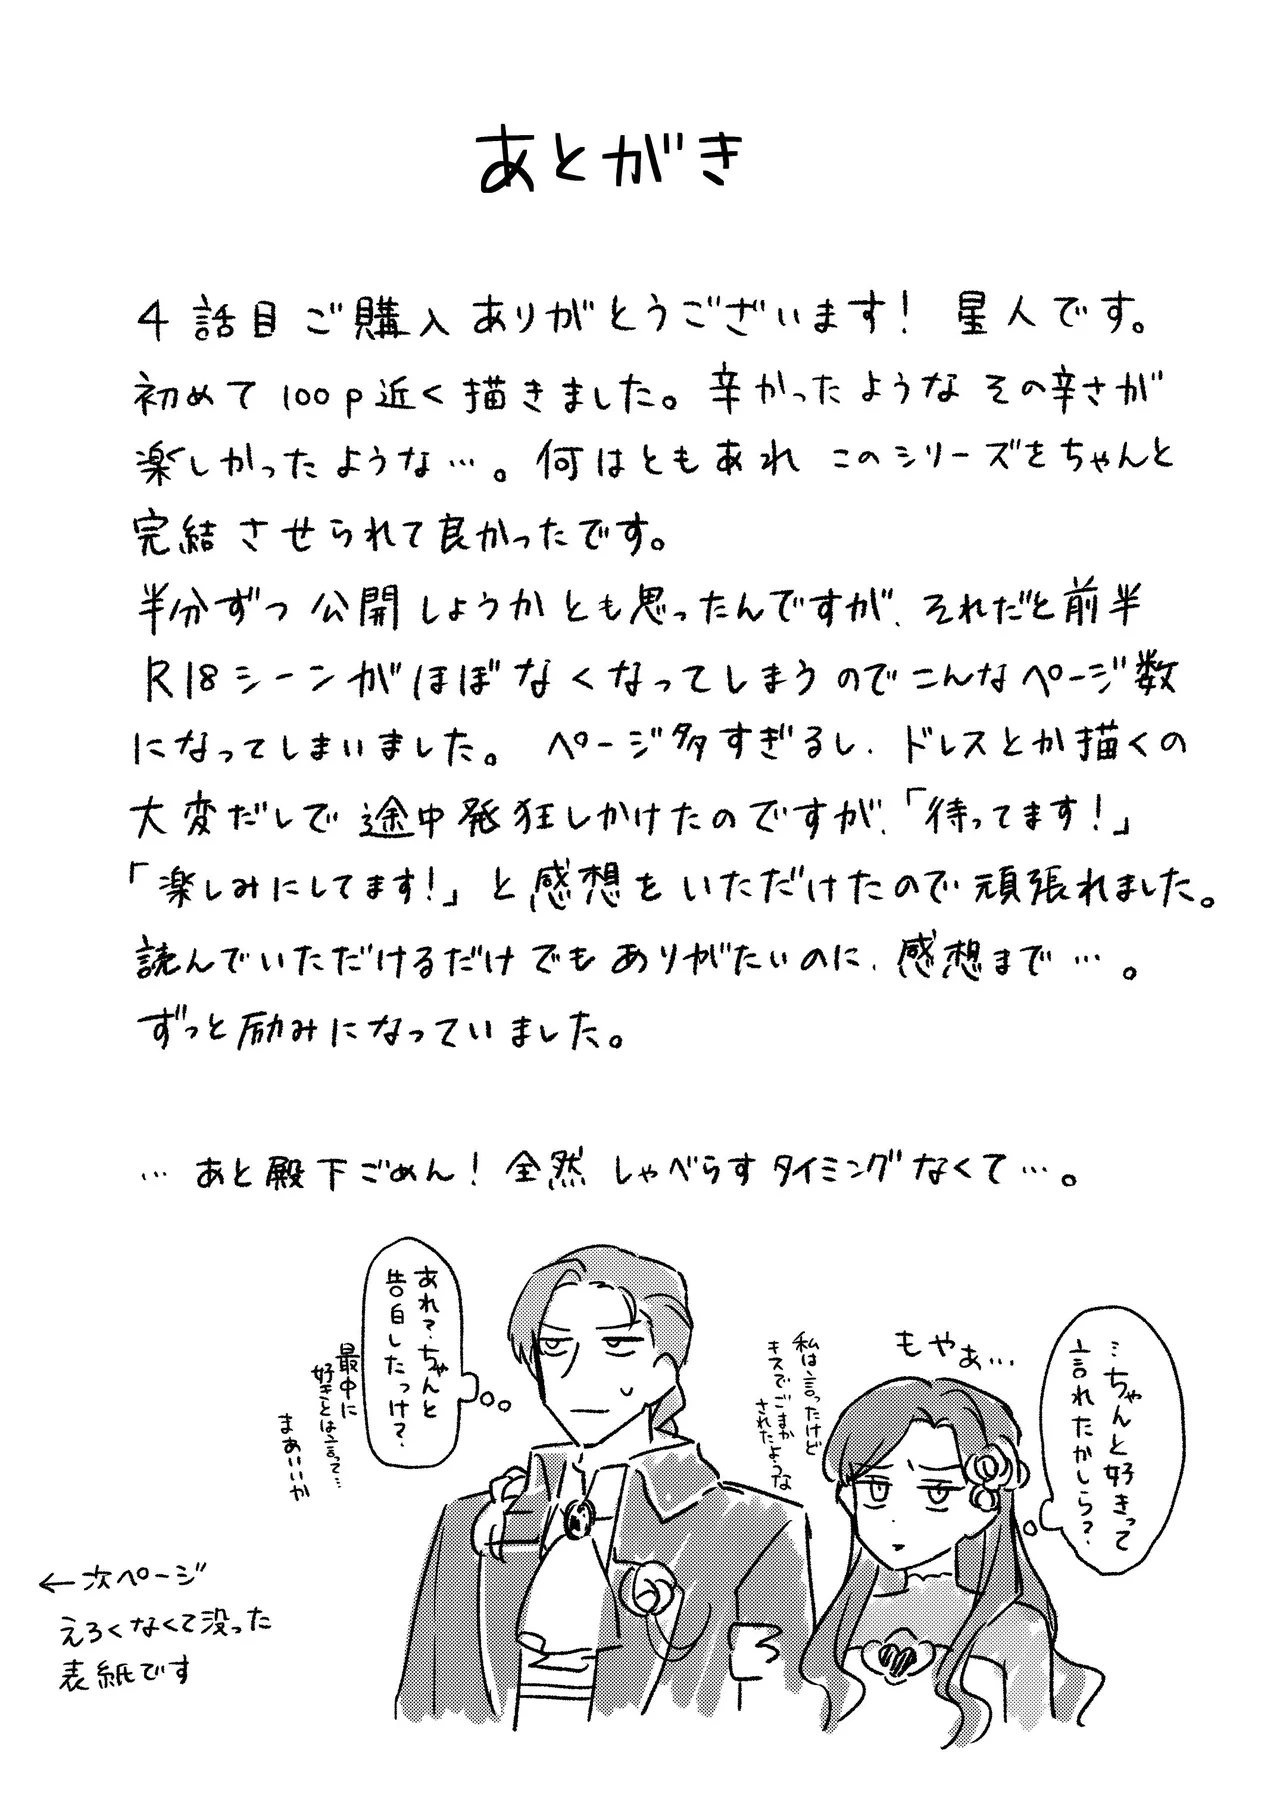 あとがき
4話目ご購入ありがとうございます! 星人です。
初めて100p近く描きました。辛かったようなその辛さが
楽しかったような…。何はともあれ このシリーズをちゃんと
完結させられて良かったです。
半分ずつ公開しようかとも思ったんですが、それだと前半
R18シーンがほぼなくなってしまうのでこんなページ数
になってしまいました。 ページ多すぎるし、ドレスとか描くの
大変だしで途中発狂しかけたのですが、「待ってます!」
「楽しみにしてます!」と感想をいただけたので頑張れました。
読んでいただけるだけでもありがたいのに、感想まで…。
ずっと励みになっていました。
…あと殿下ごめん! 全然しゃべらすタイミングなくて…。
…ちゃんと好きって
言れたかしら?
もやぁ…
私は言ったけど
キスでごまか
されたような
あれ?ちゃんと
告白したっけ?
最中に
好きとは言って…
まあいいか
←次ページ
えろくなくて没った
表紙です